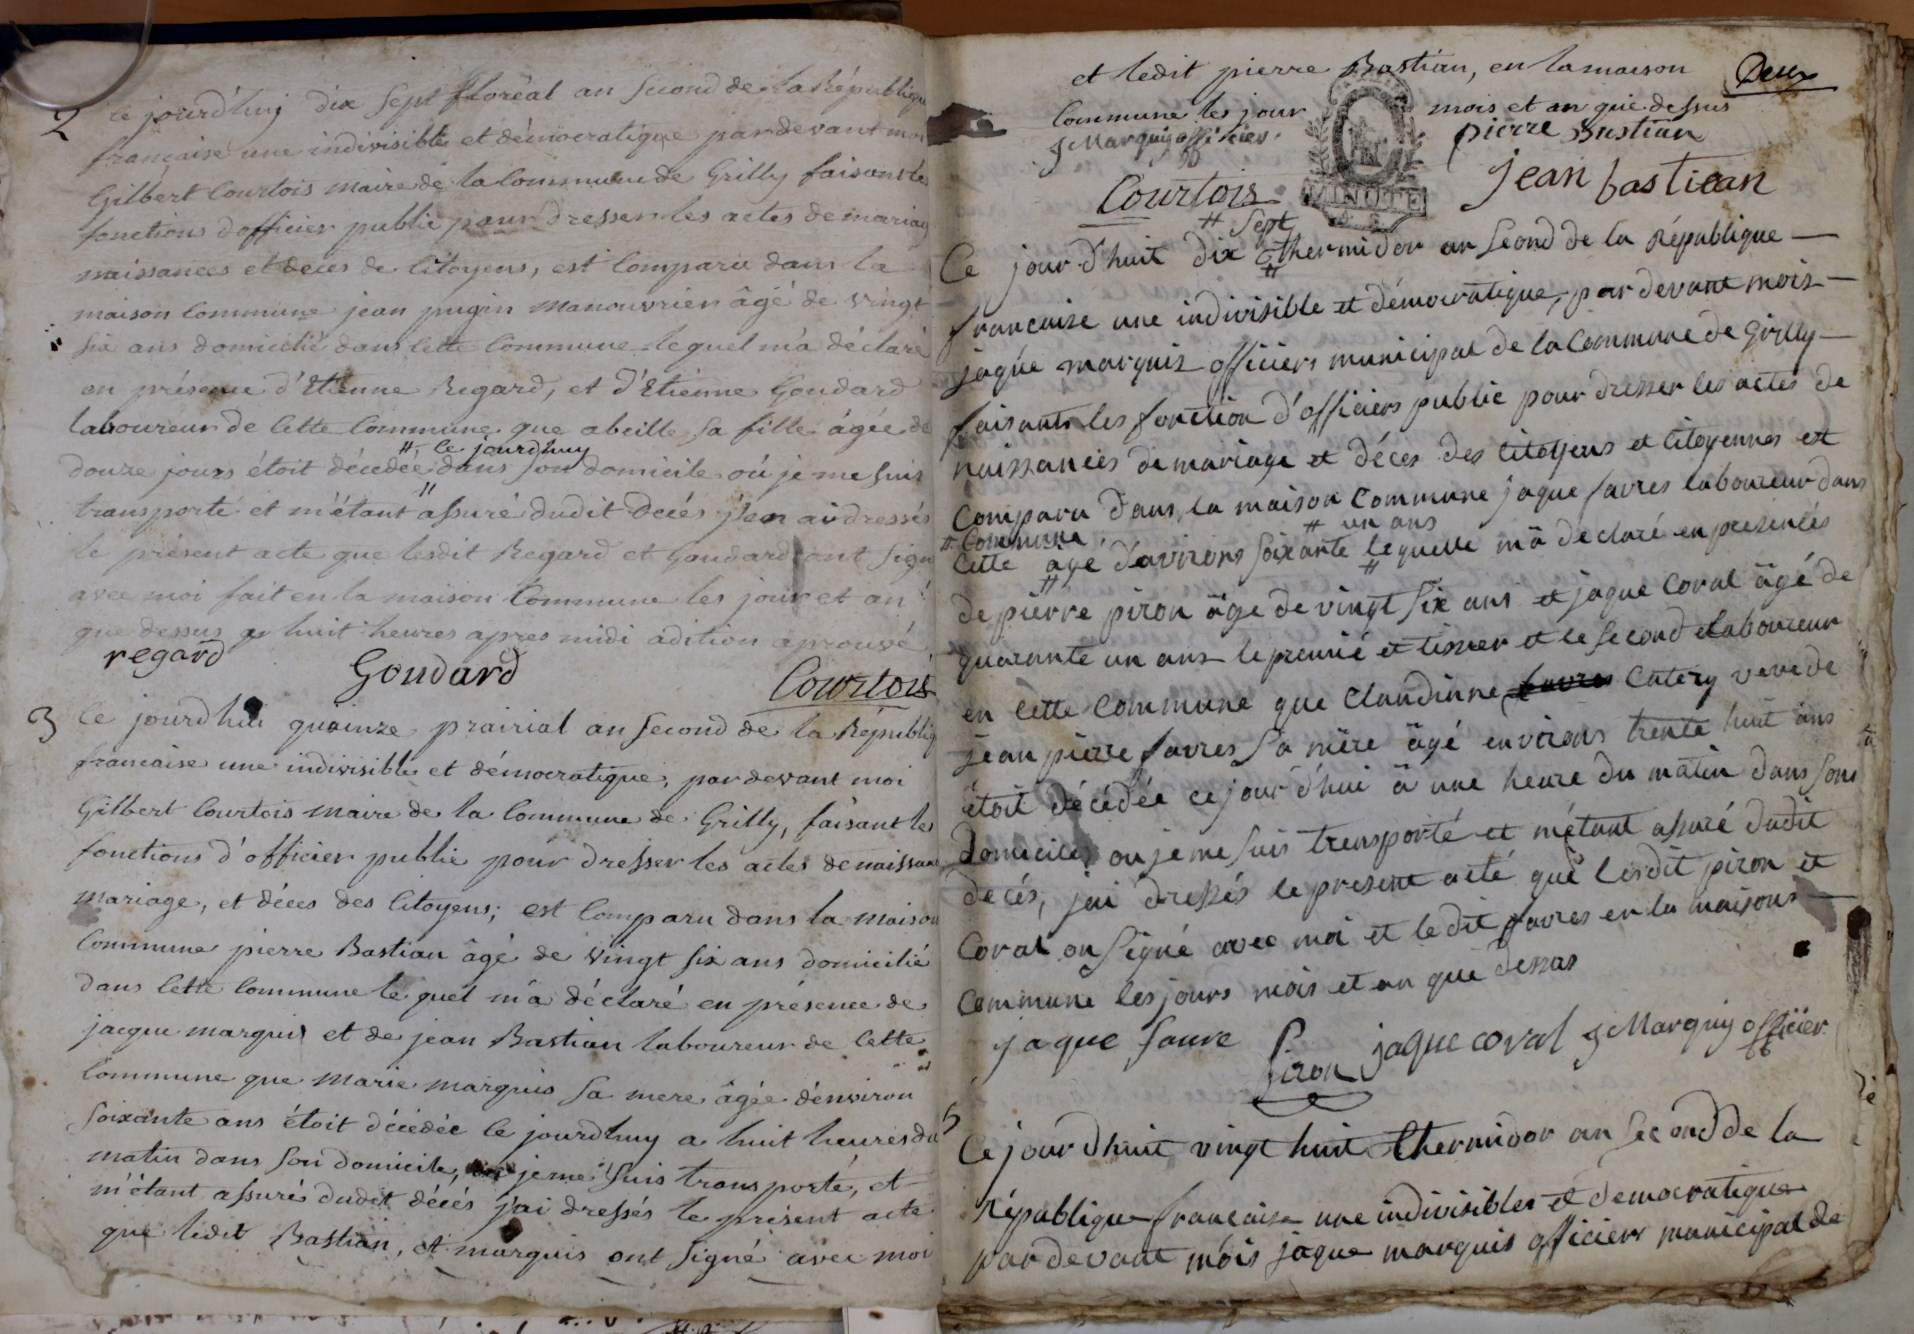 2
Ce jourd'huy dix sept floréal an second de la République
française une indivisible et démocratique pardevant moi
Gilbert Courtois maire de la Commune de Grilly faisant les
fonctions d'officier public pour dresser les actes de mariag
naissances et deces de Citoyens, est Comparu dans la
maison Commune jean pugin manouvrier âgé de vingt
six ans domicilié dans cette Commune lequel m'a déclaré
en présence d'Etienne Regard, et d'Etienne Goudard
laboureur de Cette Commune que abeille sa fille âgée de
# ce jourdhuy
douze jours étoit décedée dans son domicile où je me suis
transporté et m'étant assuré dudit decés j'en ai dressés
le présent acte que lesdit Regard et Goudard ont signé
avec moi fait en la maison Commune les jour et an
que dessus a huit heures apres midi adition aprouvé
regard Goudard Courtois
3
Ce jourdhui quainze prairial an second de la Républiq
francaise une indivisible et démocratique, pardevant moi
Gilbert Courtois maire de la Commune de Grilly, faisant les
fonctions d'officier public pour dresser les actes de naissan
mariage, et déces des Citoyens; est Comparu dans la maison
Commune pierre Bastian âgé de vingt six ans domicilié
dans Cette Commune le quel m'a déclaré en présence de
jacque marquis et de jean Bastian laboureur de Cette
Commune que marie marquis sa mere âgée d'environ
soixante ans étoit décédée ce jourdhuy a huit heures du
matin dans son domicile, je me suis transporté, et
m'étant assuré dudit décés j'ai dressés le présent acte
que ledit Bastian, et marquis ont signé avec moi
et ledit pierre Bastian, en la maison
Deux
Commune les jour mois et an que dessus
J Marquis officier pierre Bastian
MINUTE
Courtois jean bastiean
# Sept
Ce jour d'huit dix # thermidor an second de la République
francaise une indivisible et démocratique, par devant mois
jaque marquis officiers municipal de la Commune de Grilly
faisants les fonction d'officiers public pour dresser les actes de
naissances de mariage et déces des Citoyens et Citoyennes est
Comparu dans la maison Commune jaque favres laboureur dans
# Commune # un ans
Cette # agé d'avirons soixante # lequelle m'a declaré en presences
de pierre piron âge de vingt six ans et jaque Coral âgé de
quarante un ans le premié et tisser et le second laboureur
en Cette Commune que Claudinne Catéry veve de
jean pierre favres sa mère âgé environs trente huit ans
étoit décédée ce jour d'hui à une heure du matin dans sons
domiciles ou je me suis transporté et métant assuré dudit
decés, jai dressés le present acté que lesdit piron et
Coral on signé avec moi et le dit favres en la maisons
Commune les jours mois et an que dessus
jaque favre Piron jaque coral J Marquis officier
5
Ce jour d'huit vingt huit thermidor an second de la
République francaise une indivisibles et democratique
par devant mois jaque marquis officiers municipal de